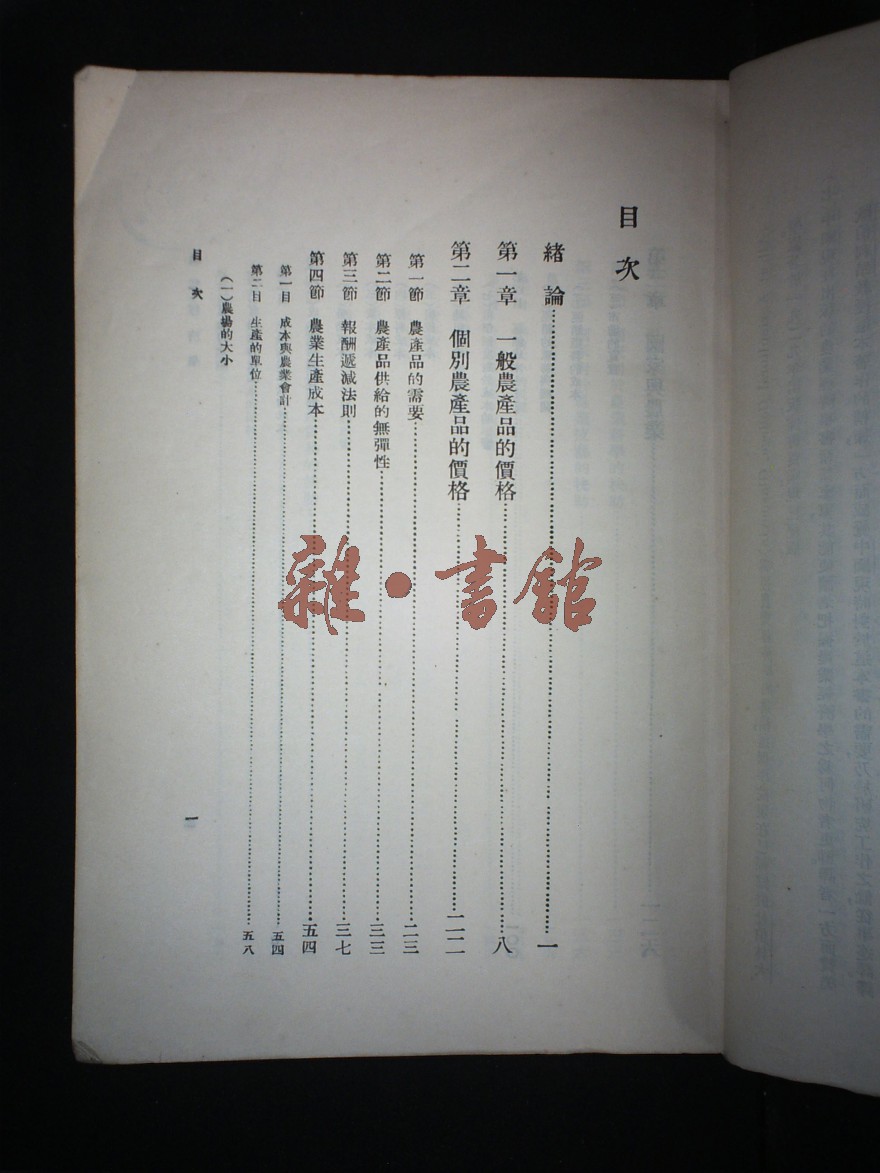 目次
緒論……一
第一章 一般農產品的價格……八
第二章 個別農產品的價格……二二
第一節 農產品的需要……二三
第二節 農產品供給的無彈性……三三
第三節 報酬遞減法則……三七
第四節 農業生產成本……五四
第一目 成本與農業會計……五四
第二目 生產的單位……五八
(一)農場的大小
目次 一
雜·書館